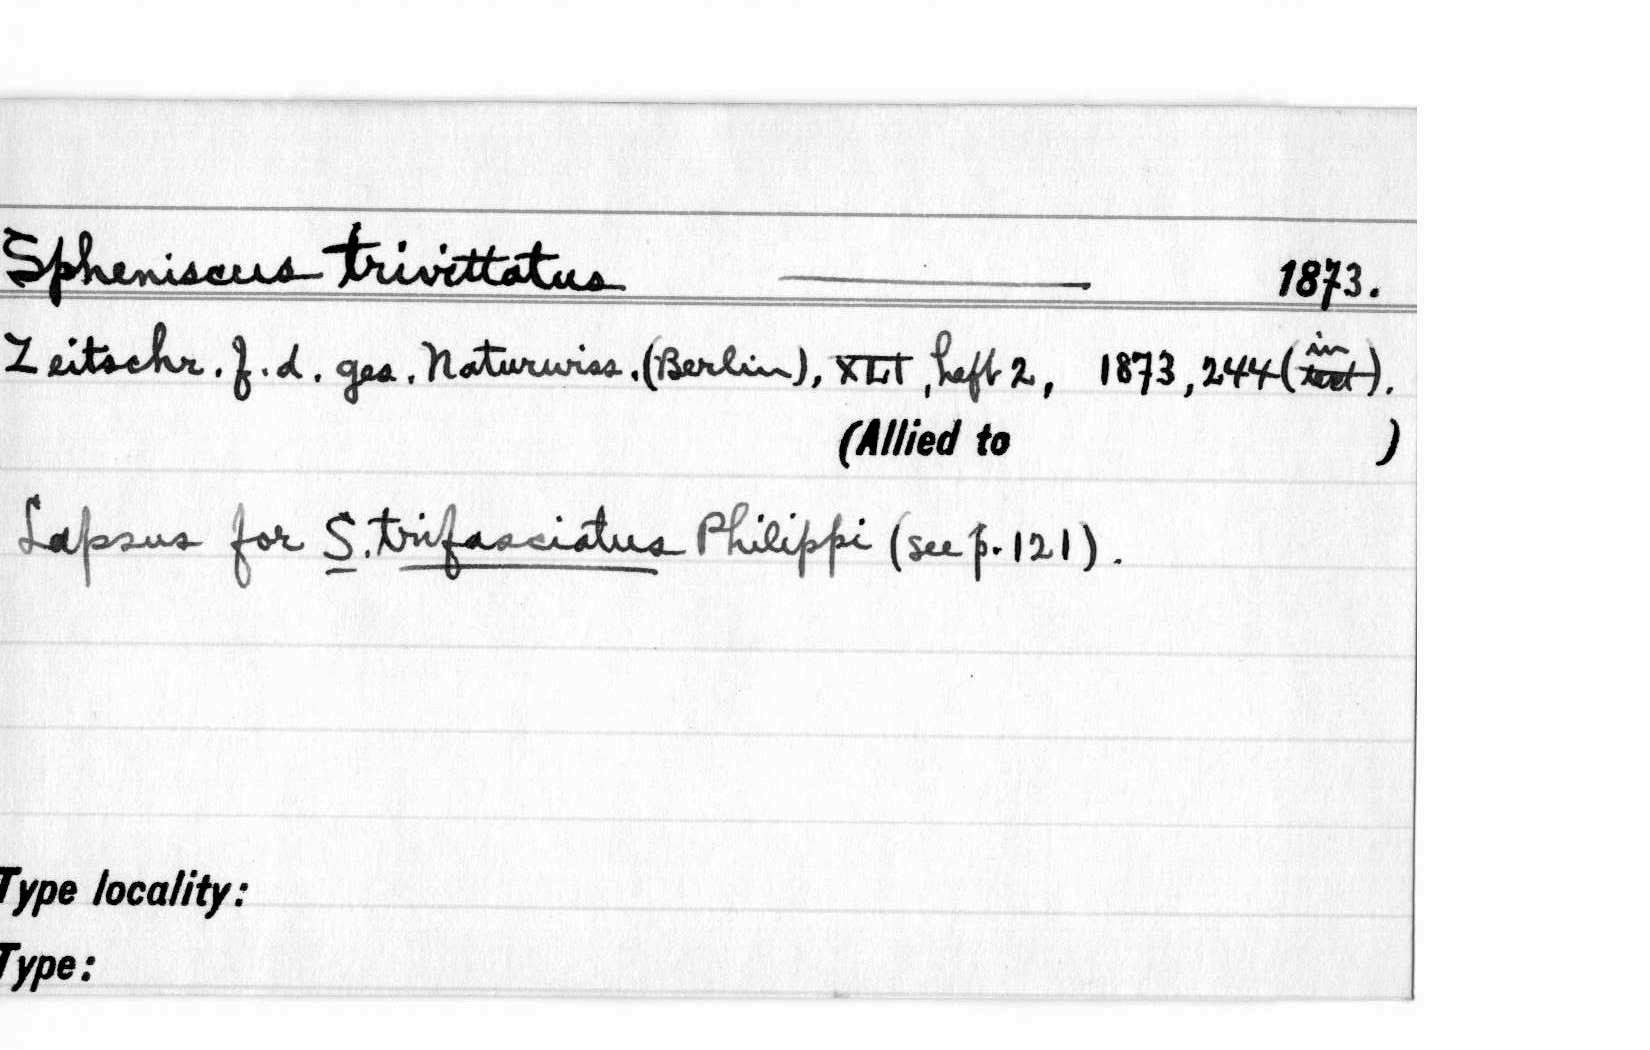 Spheniscus trivittatus ——— 1873.
Zeitschr. f. d. ges. Naturwiss. (Berlin), XLI, heft 2, 1873, 244 (in text).
(Allied to )
Lapsus for S. trifasciatus Philippi (see p. 121).
Type locality:
Type: